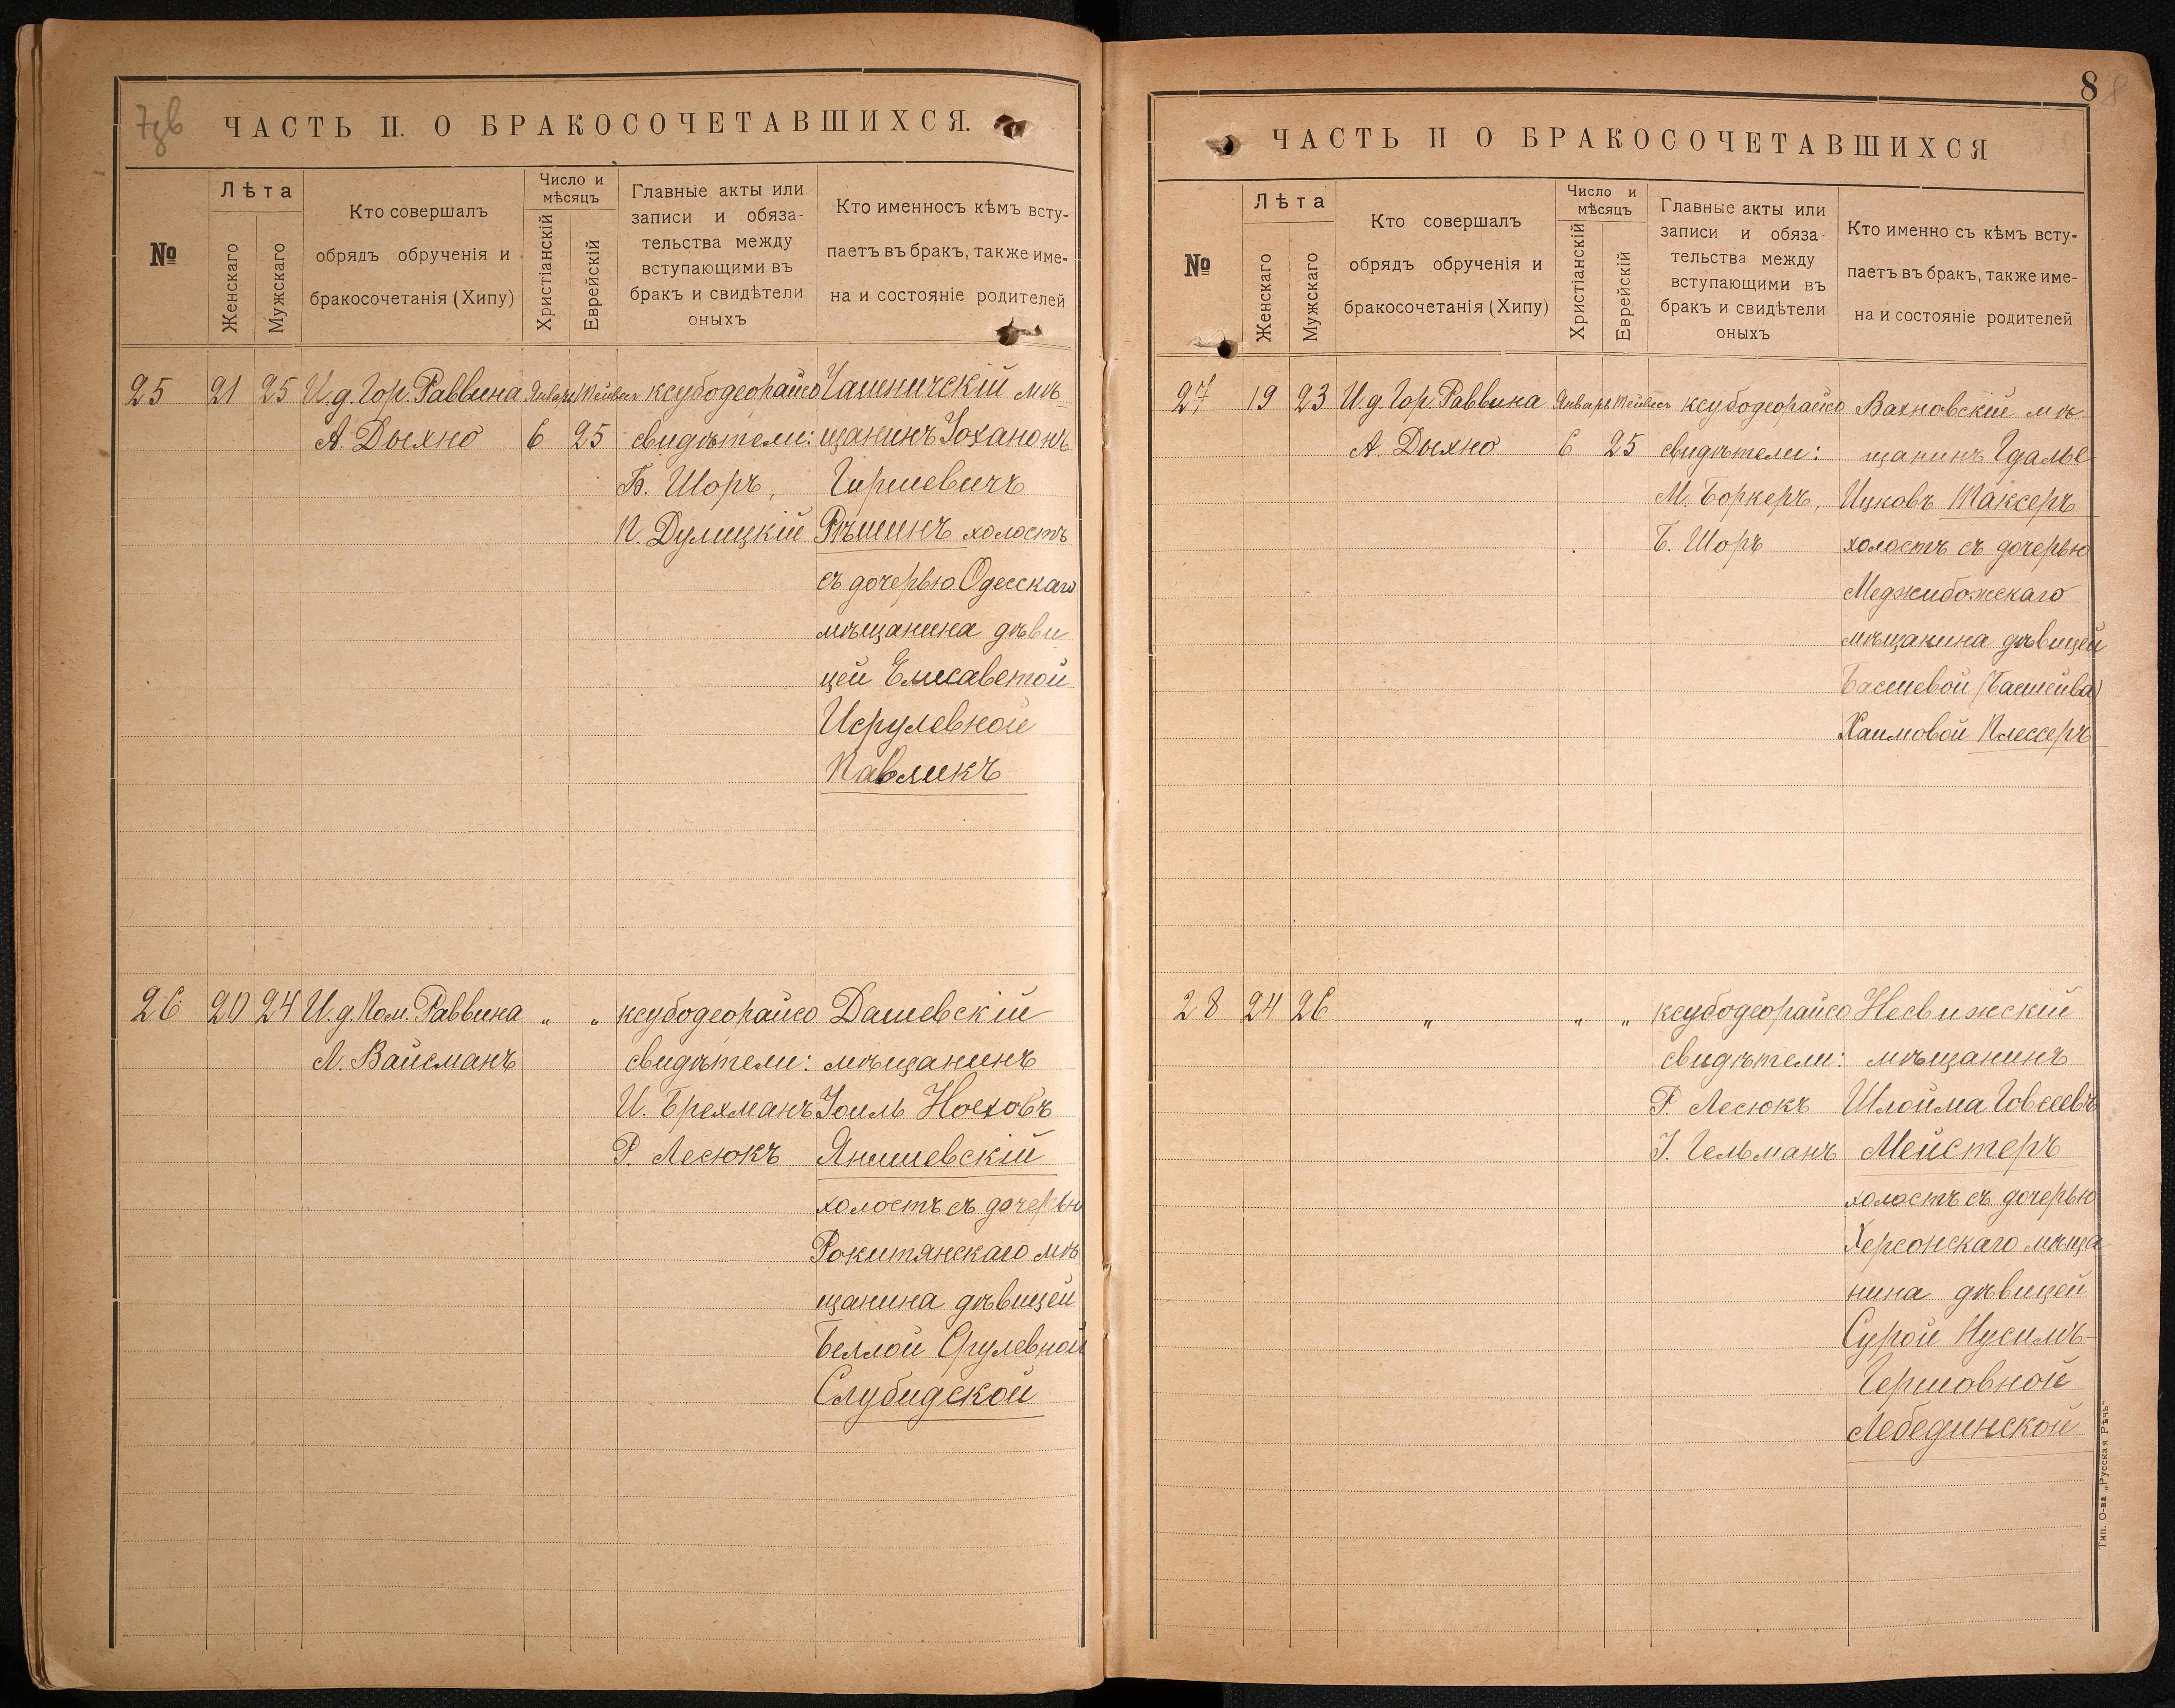 7зв
ЧАСТЬ II. О БРАКОСОЧЕТАВШИХСЯ.
№
Лѣта
Женскаго
Мужскаго
Кто совершалъ
обрядъ обрученія и
бракосочетанія (Хипу)
Число и
мѣсяцъ
Христіанскій
Еврейскій
Главные акты или
записи и обяза-
тельства между
вступающими въ
бракъ и свидѣтели
оныхъ
Кто именносъ кѣмъ всту-
паетъ въ бракъ, также име-
на и состояніе родителей
25 21 25 И.д. Гор. Раввина Январь Тейвесъ ксубодеорайсо Чашничскій мѣ-
А. Дыхно 6 25 свидѣтели: щанинъ Іоханонъ
Б. Шоръ, Гиршевичъ
П. Дулицкій Рѣшинъ холостъ
съ дочерью Одесскаго
мѣщанина дѣви
цей Елисаветой
Исрулевной
Павликъ
26 20 24 И.д. Пом. Раввина „ „ ксубодеорайсо Дашевскій
Л. Вайсманъ свидѣтели: мѣщанинъ
И. Брехманъ Іоиль Ноеховъ
Р. Лесюкъ Янишевскій
холостъ съ дочерью
Рокитянскаго мѣ
щанина дѣвицей
Беллой Срулевной
Слубидской
8 8
ЧАСТЬ II О БРАКОСОЧЕТАВШИХСЯ
№
Лѣта
Женскаго
Мужскаго
Кто совершалъ
обрядъ обрученія и
бракосочетанія (Хипу)
Число и
мѣсяцъ
Христіанскій
Еврейскій
Главные акты или
записи и обяза-
тельства между
вступающими въ
бракъ и свидѣтели
оныхъ
Кто именно съ кѣмъ всту-
паетъ въ бракъ, также име-
на и состояніе родителей
27 19 23 И.д. Гор. Раввина Январь Тейвесъ ксубодеорайсо Вахновскій мѣ-
А. Дыхно 6 25 свидѣтели: щанинъ Гдалье
М. Боркеръ, Ицковъ Таксеръ
Б. Шоръ холостъ съ дочерью
Меджибожскаго
мѣщанина дѣвицей
Басшевой (Басшейва)
Хаимовой Плессеръ
28 24 26 „ „ „ ксубодеорайсо Несвижскій
свидѣтели: мѣщанинъ
Р. Лесюкъ Шлойма Говсеевъ
І. Гельманъ Мейстеръ
холостъ съ дочерью
Херсонскаго мѣща
нина дѣвицей
Сурой Нусимъ-
Гершовной
Лебединской
Тип. О-ва „Русская Рѣчь“